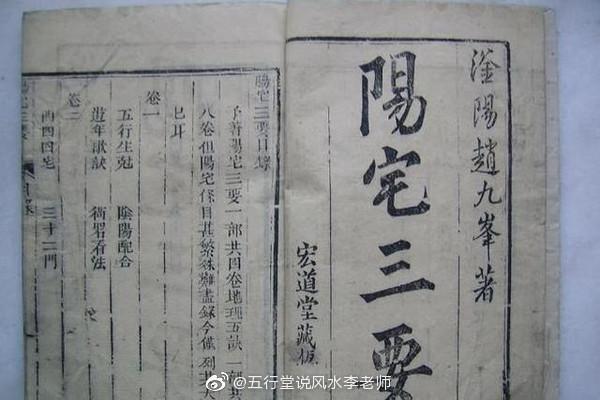 滏陽趙九峯著
陽宅三要
宏道堂藏板
陽宅三要目錄
予著陽宅三要一部共四卷地理五訣一部共
八卷但陽宅條目甚繁殊難盡錄今僅列大
已耳
卷一
五行生尅 陰陽配合
遊年歌訣 衙署看法
卷二
西四四宅 三十二門
陽宅三要 目錄
@五行堂说风水李老师